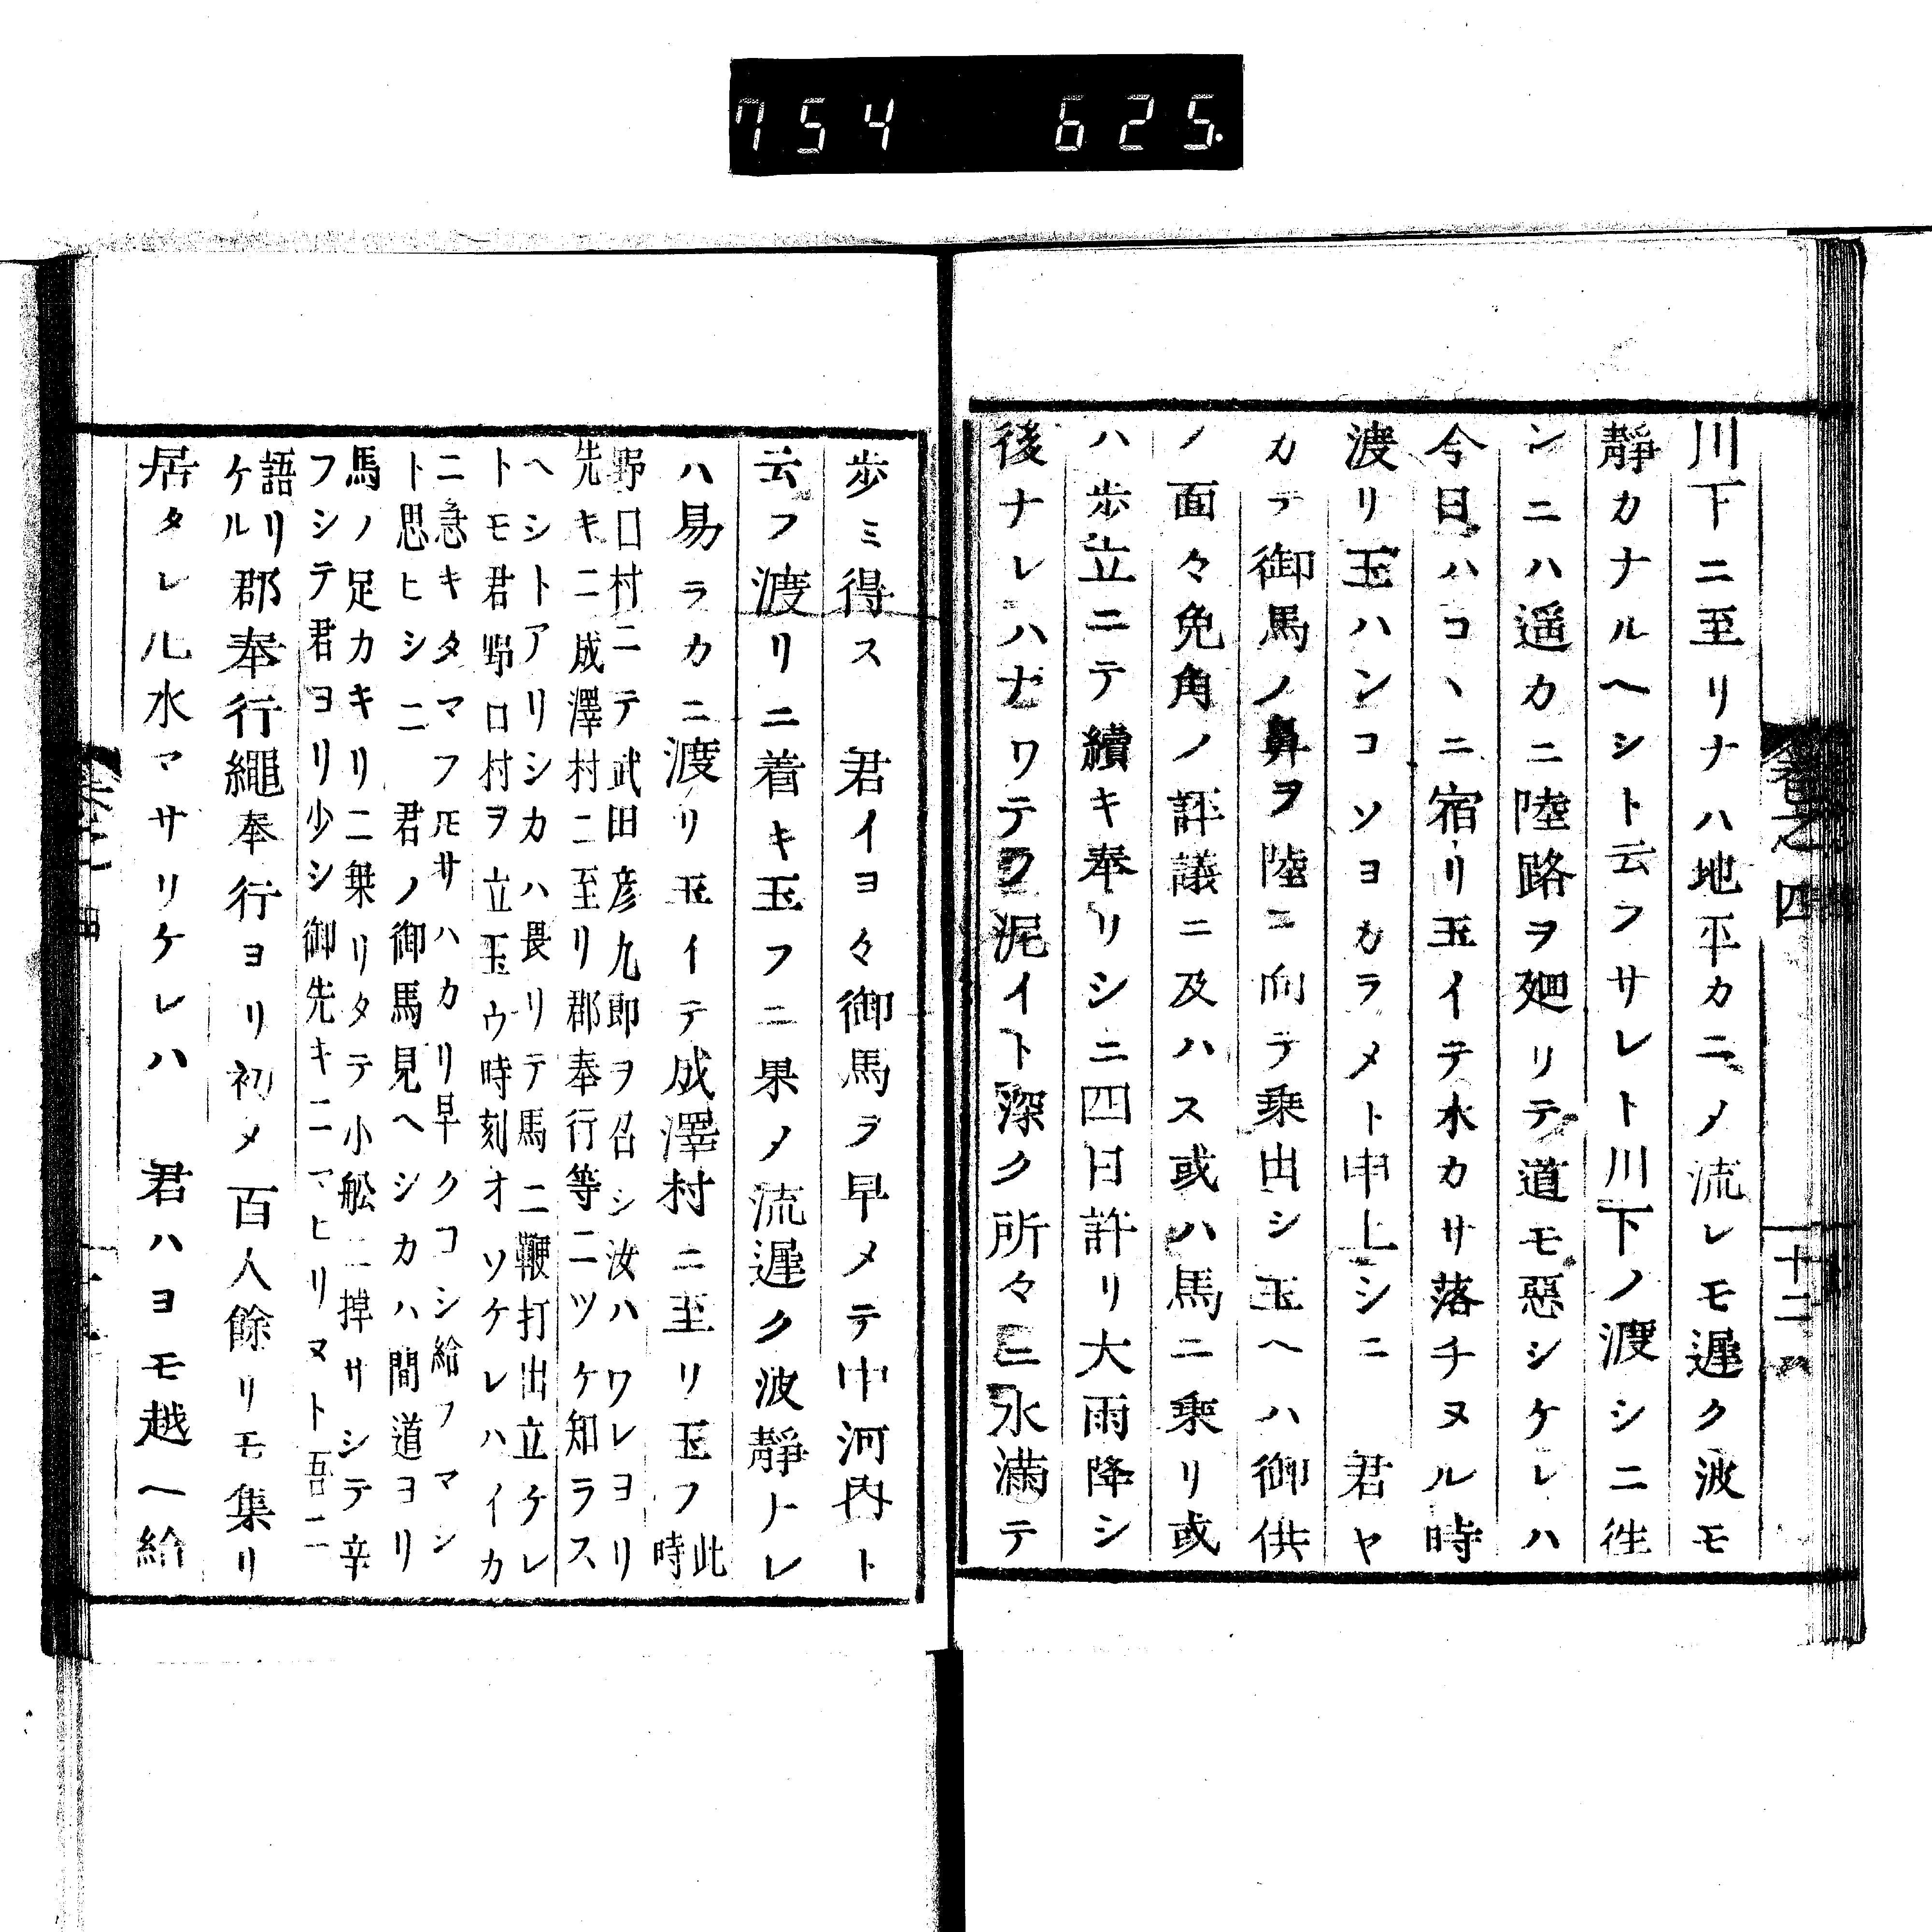 754 625.
卷之四
十二
川下ニ至リナハ地平カニノ流レモ遲ク波モ
靜カナルヘシト云フサレト川下ノ渡シニ徃
ンニハ遥カニ陸路ヲ廻リテ道モ惡シケレハ
今日ハコヽニ宿リ玉イテ水カサ落チヌル時
渡リ玉ハンコソヨカラメト申上シニ　君ヤ
カテ御馬ノ鼻ヲ陸ニ向テ乗出シ玉ヘハ御供
ノ面々免角ノ評議ニ及ハス或ハ馬ニ乘リ或
ハ歩立ニテ續キ奉リシニ四日許リ大雨降シ
後ナレハナワテノ泥イト深ク所々ニ水滿テ
歩ミ得ス　君イヨ々御馬ヲ早メテ中河内ト
云フ渡リニ着キ玉フニ果ノ流遲ク波靜ナレ
ハ易ラカニ渡リ玉イテ成澤村ニ至リ玉フ此時
野口村ニテ武田彦九郎ヲ召シ汝ハワレヨリ
先キニ成澤村ニ至リ郡奉行等ニツケ知ラス
ヘシトアリシカハ畏リテ馬ニ鞭打出立チレ
トモ君野口村ヲ立玉ウ時刻オソケレハイカ
ニ急キタマフ𪜈サハカリ早クコシ給フマシ
ト思ヒシニ　君ノ御馬見ヘシカハ間道ヨリ
馬ノ足カキリニ乗リタテ小舩ニ棹サシテ辛
フシテ君ヨリ少シ御先キニマヒリヌト吾ニ
語リ
ケル郡奉行繩奉行ヨリ初メ百人餘リモ集リ
居タレ𠃔水マサリケレハ　君ハヨモ越ヘ給